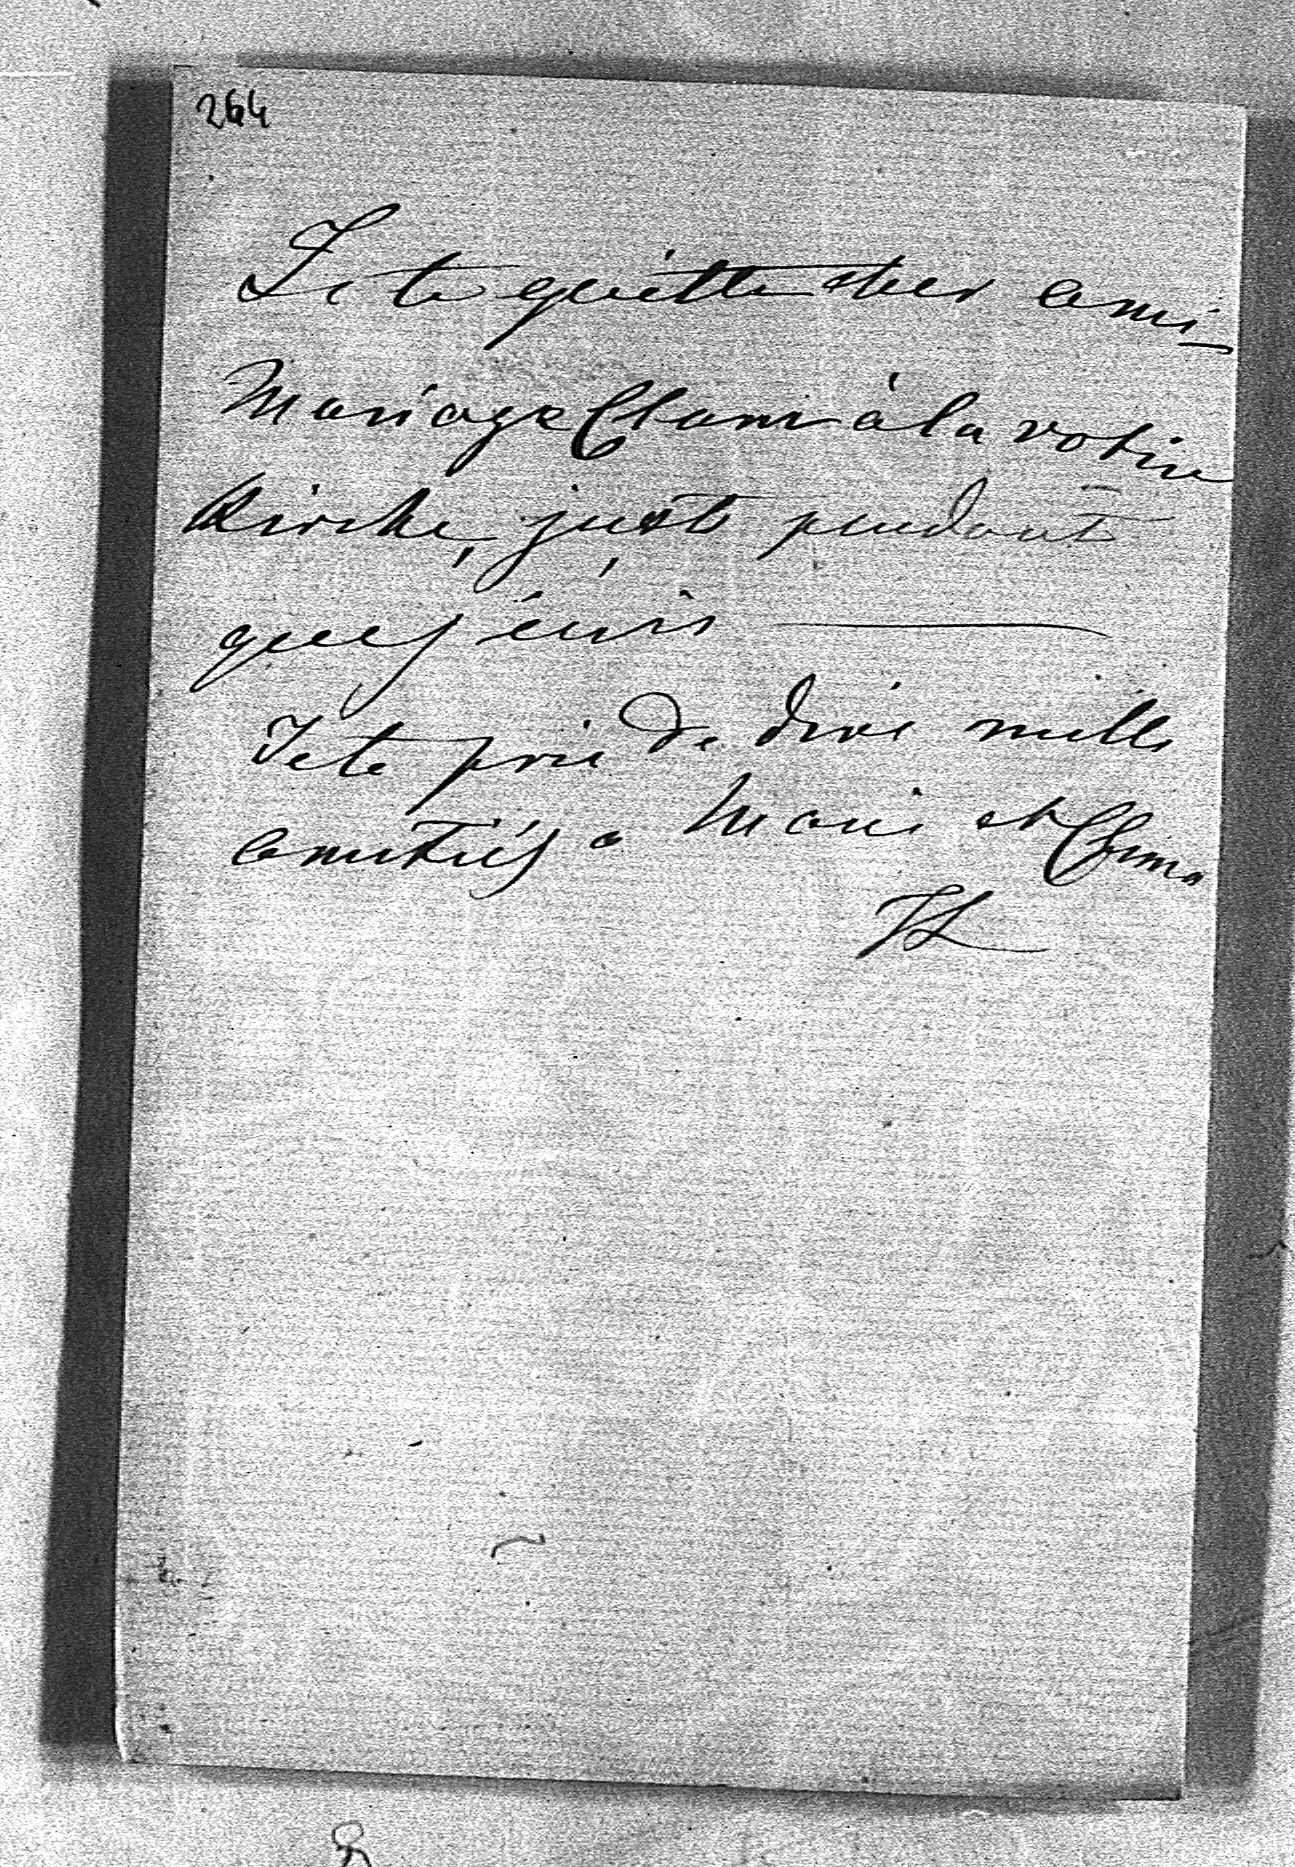 264
Je te quitte cher ami
Mariage Clam à la Votive
Kirche, juste pendant
que j'écris
Je te prie de dire mille
amitiés à Marie et